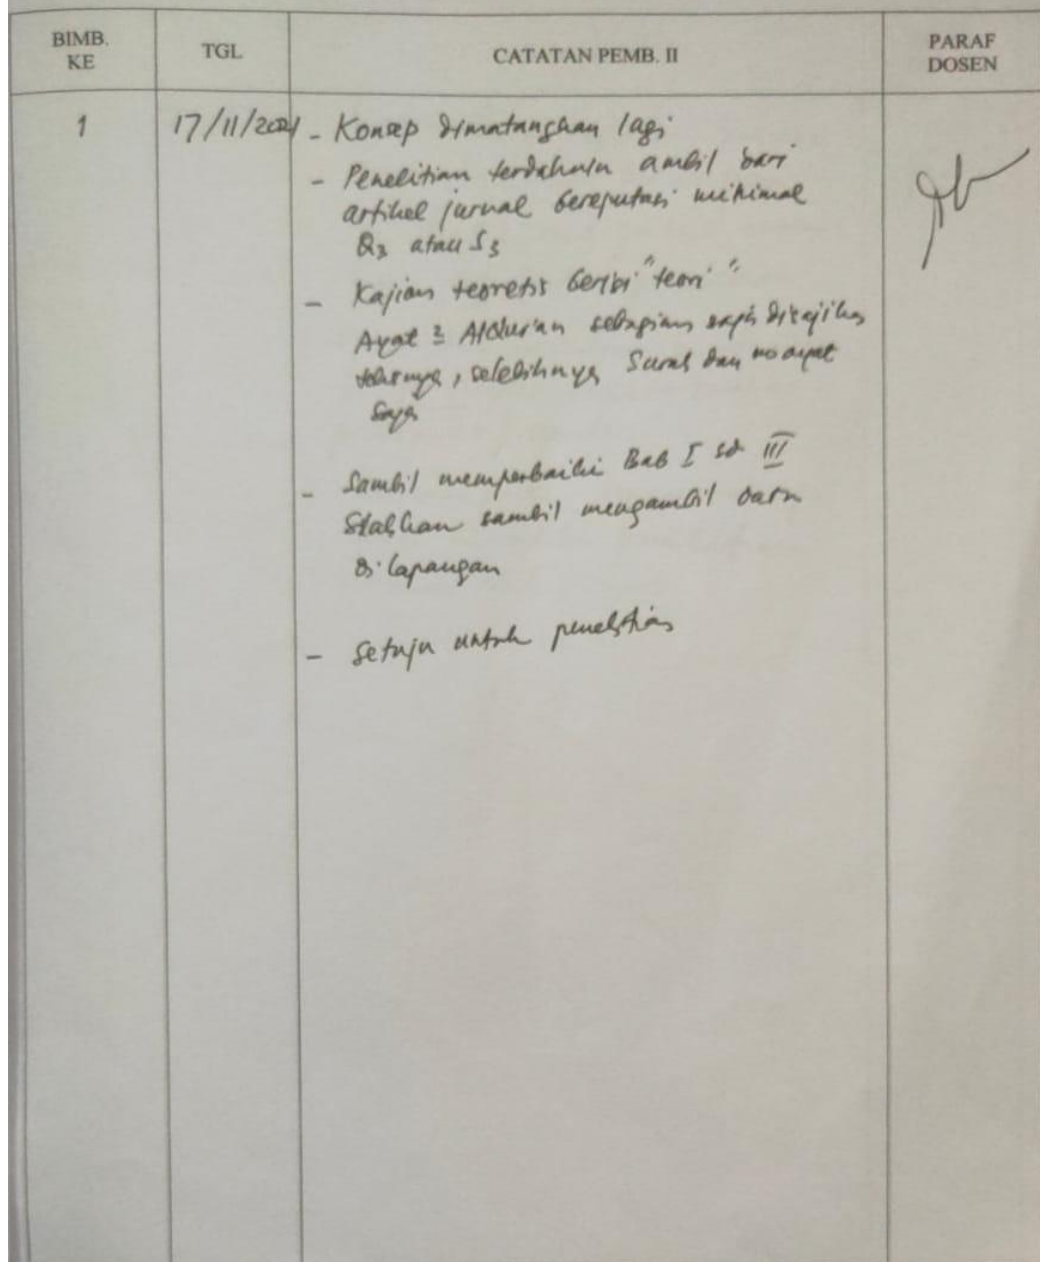 BIMB. KE
TGL
CATATAN PEMB. II
PARAF DOSEN
1
17/11/2021
- Konsep dimatangkan lagi
- Penelitian terdahulu ambil dari
artikel jurnal bereputasi minimal
Q3 atau S3
- Kajian teoretis berisi "teori"
Ayat2 Alqur'an sebagian saja disajikan
, selebihnya Surat dan no ayat
saja
- Sambil memperbaiki Bab I sd III
Silahkan sambil mengambil data
di lapangan
- Setuju untuk penelitian